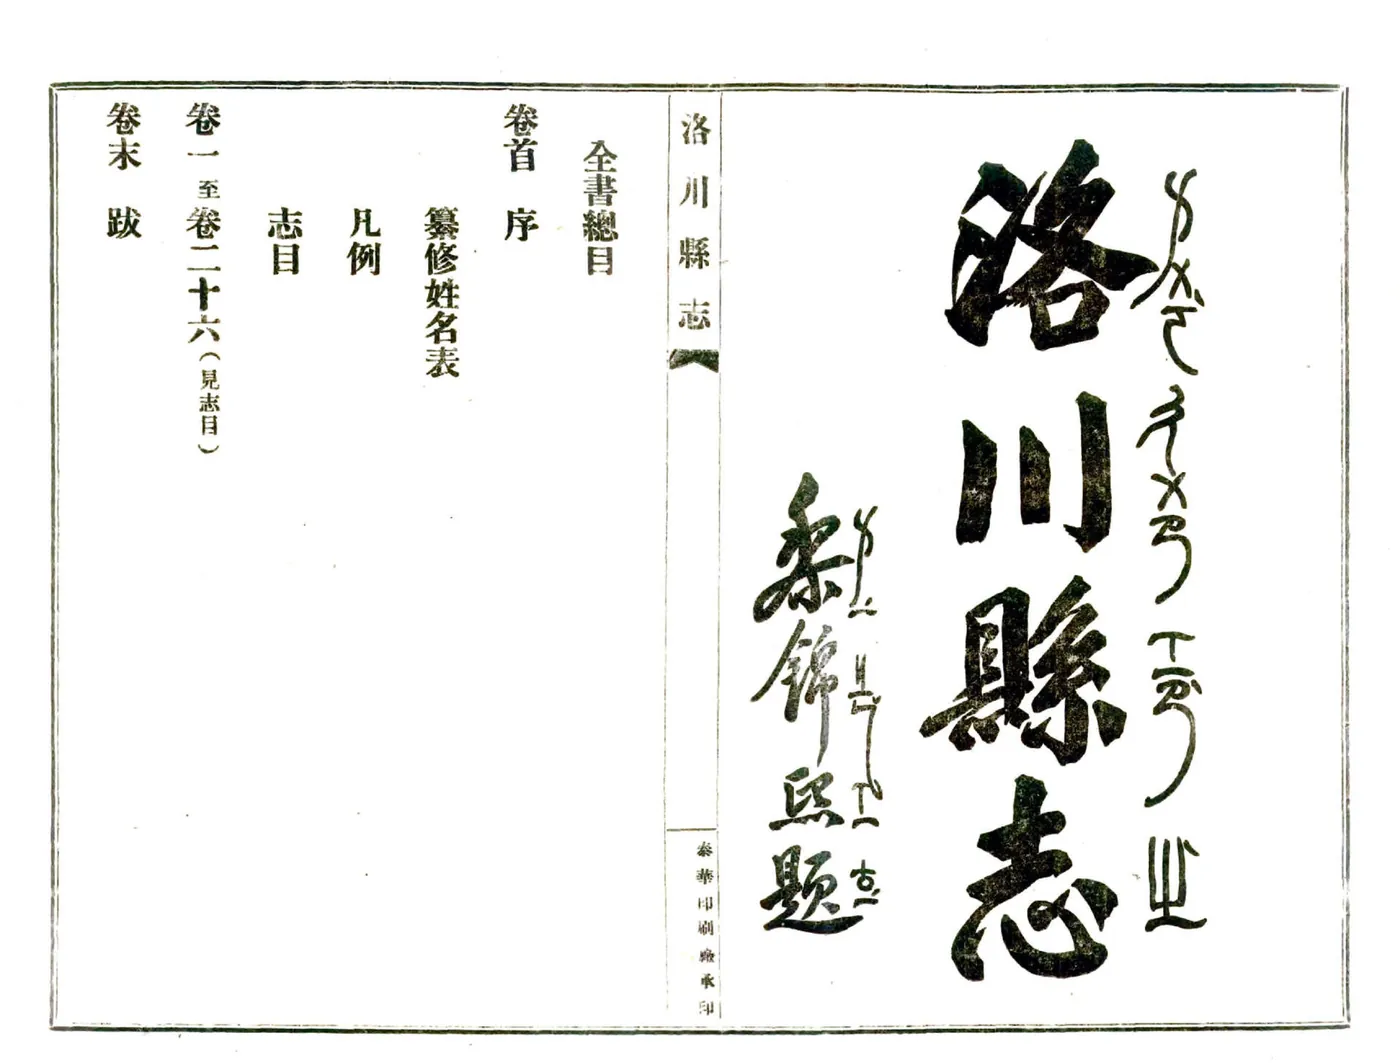 ㄌㄨㄛˋ ㄔㄨㄢ ㄒㄧㄢˋ ㄓ
洛川縣志
黎錦熙題
洛川縣志
泰華印刷廠承印
全書總目
卷首 序
纂修姓名表
凡例
志目
卷一至卷二十六（見志目）
卷末 跋